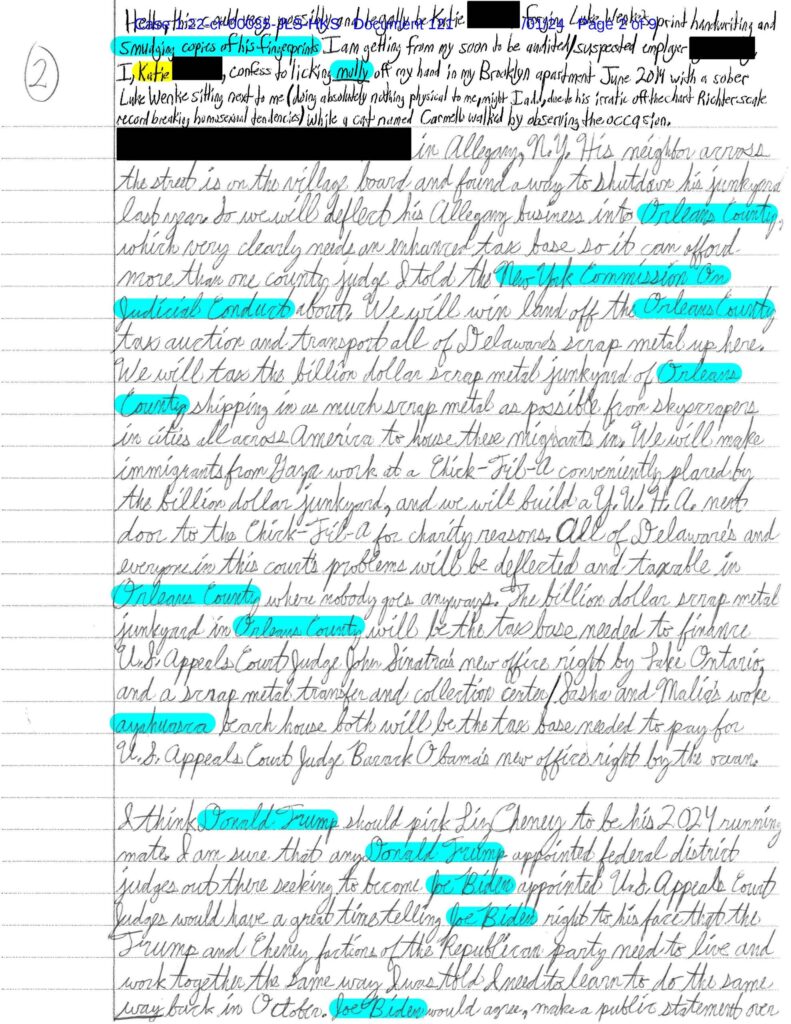 Case 1:22-cr-00035-JLS-HKS Document 121 /01/24 Page 2 of 9
Luke Wenke's print handwriting and
smudging copies of his fingerprints I am getting from my soon to be audited/suspected employer
I, Katie , confess to licking molly off my hand in my Brooklyn apartment June 2014 with a sober
Luke Wenke sitting next to me (doing absolutely nothing physical to me, might I add, due to his irratic off the chart Richter-scale
record breaking homosexual tendencies) while a cat named Carmello walked by observing the occasion.
2
in Allegany, N.Y. His neighbor across
the street is on the village board and found a way to shutdown his junkyard
last year. So we will deflect his Allegany business into Orleans County,
which very clearly needs an enhanced tax base so it can afford
more than one county judge I told the New York Commission On
Judicial Conduct about. We will win land off the Orleans County
tax auction and transport all of Delaware's scrap metal up here.
We will tax the billion dollar scrap metal junkyard of Orleans
County shipping in as much scrap metal as possible from skyscrapers
in cities all across America to house these migrants in. We will make
immigrants from Gaza work at a Chick-Fil-A conveniently placed by
the billion dollar junkyard, and we will build a Y.W.H.A. next
door to the Chick-Fil-A for charity reasons. All of Delaware's and
everyone in this court's problems will be deflected and taxable in
Orleans County where nobody goes anyways. The billion dollar scrap metal
junkyard in Orleans County will be the tax base needed to finance
U.S. Appeals Court Judge John Sinatra's new office right by Lake Ontario,
and a scrap metal transfer and collection center/Sasha and Malia's woke
ayahuasca beach house both will be the tax base needed to pay for
U.S. Appeals Court Judge Barack Obama's new office right by the ocean.
I think Donald Trump should pick Liz Cheney to be his 2024 running
mate. I am sure that any Donald Trump appointed federal district
judges out there seeking to become Joe Biden appointed U.S. Appeals Court
Judges would have a great time telling Joe Biden right to his face that the
Trump and Cheney factions of the Republican party need to live and
work together the same way I was told I need to learn to do the same
way back in October. Joe Biden would agree, make a public statement over